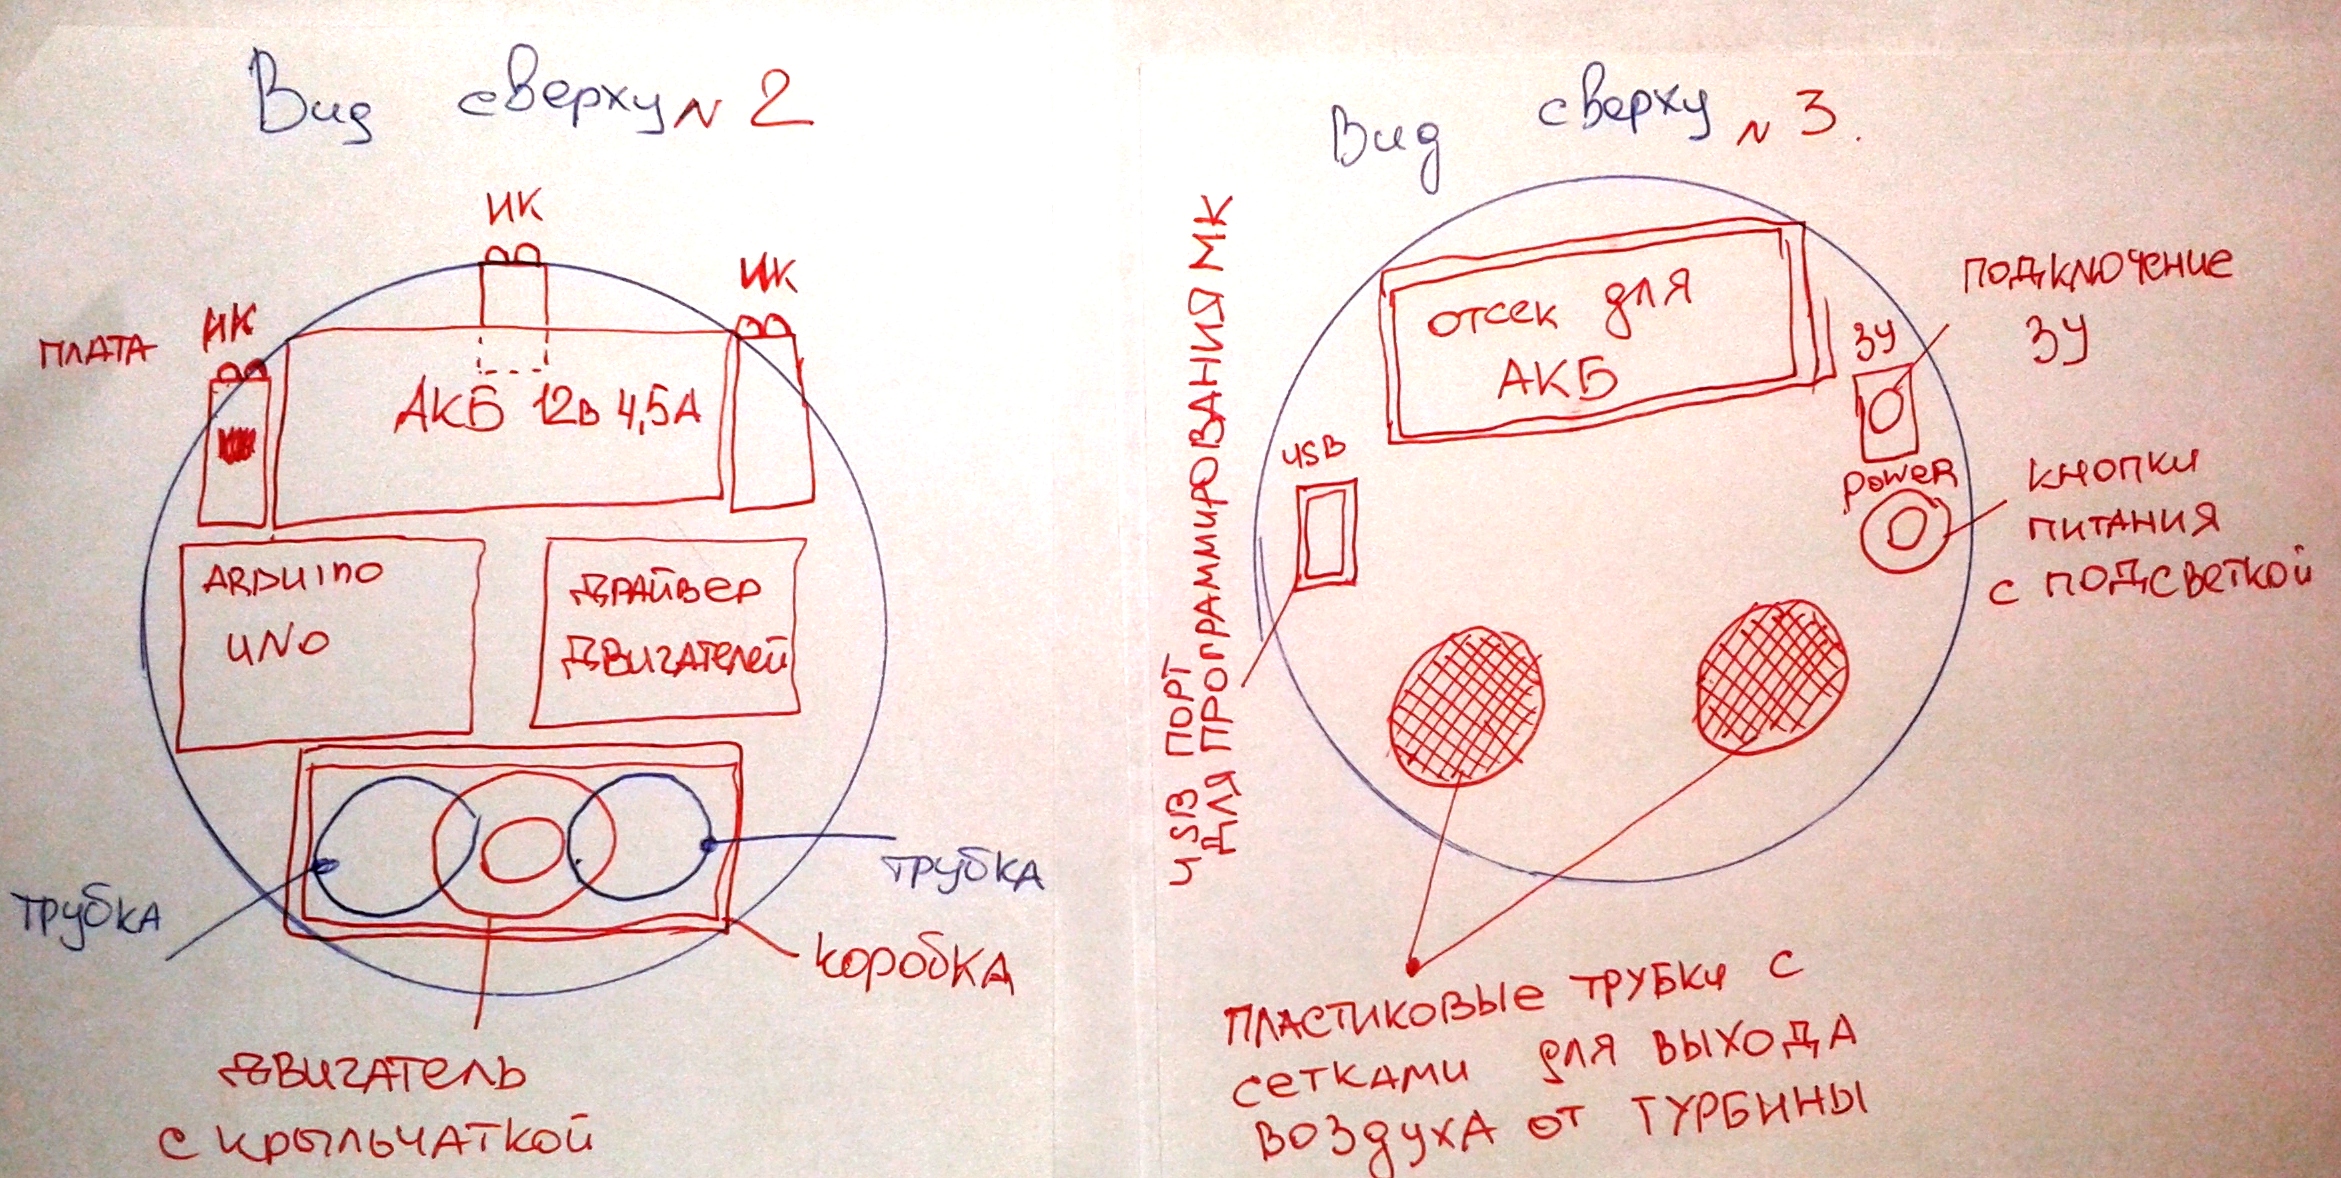 Вид сверху N 2
ИК
ИК
ПЛАТА ИК
АКБ 12в 4,5А
ARDUINO
UNO
ДРАЙВЕР
ДВИГАТЕЛЕЙ
ТРУБКА
ТРУБКА
КОРОБКА
ДВИГАТЕЛЬ
С КРЫЛЬЧАТКОЙ
Вид сверху N 3.
ОТСЕК ДЛЯ
АКБ
ПОДКЛЮЧЕНИЕ
ЗУ
ЗУ
USB
POWER
КНОПКИ
ПИТАНИЯ
С ПОДСВЕТКОЙ
USB ПОРТ
ДЛЯ ПРОГРАММИРОВАНИЯ МК
ПЛАСТИКОВЫЕ ТРУБКИ С
СЕТКАМИ ДЛЯ ВЫХОДА
ВОЗДУХА ОТ ТУРБИНЫ